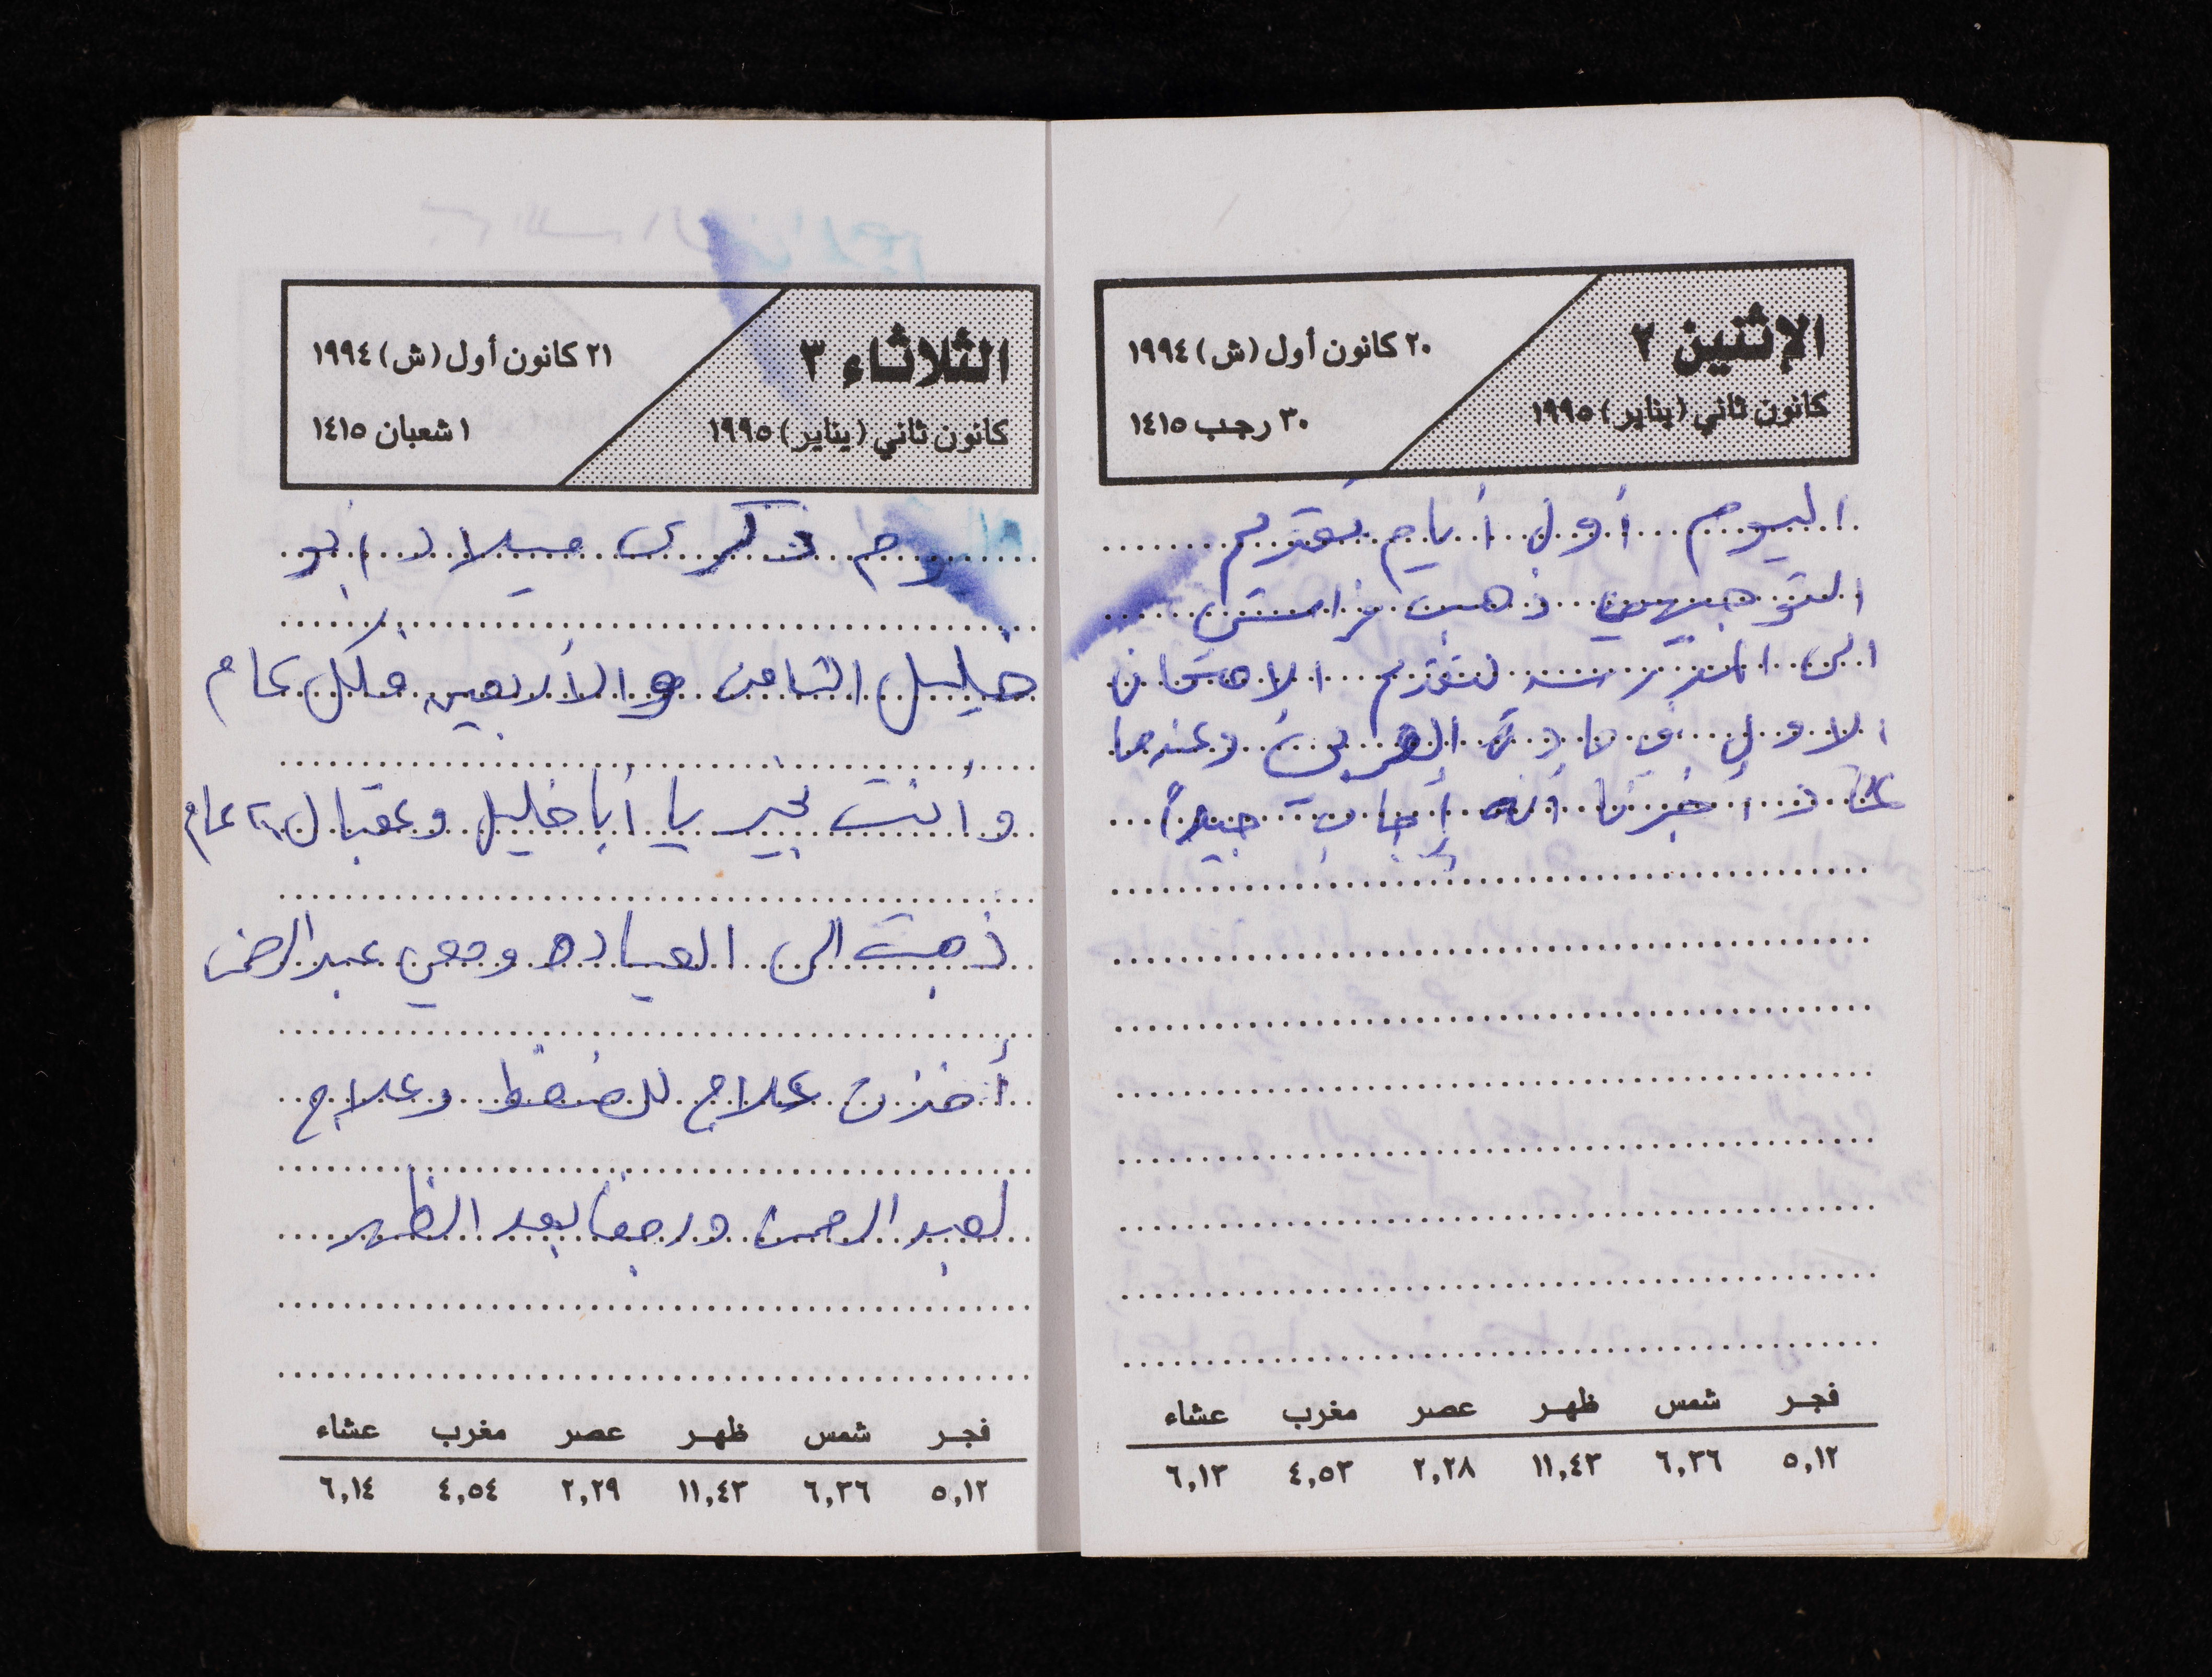 الإثنين ٢
كانون ثاني (يناير) ١٩٩٥
٢٠ كانون أول (ش) ١٩٩٤
٣٠ رجب ١٤١٥
اليوم أول أيام تقديم
التوجيهي ذهب
الى المدرسه لتقديم الامتحان
الاول في مادة العربي وعندما
عاد أخبرنا أنه أجاب جيداً
فجر شمس ظهر عصر مغرب عشاء
٥,١٢ ٦,٣٦ ١١,٤٣ ٢,٢٨ ٤,٥٣ ٦,١٣
الثلاثاء ٣
كانون ثاني (يناير) ١٩٩٥
٢١ كانون أول (ش) ١٩٩٤
١ شعبان ١٤١٥
اليوم ذكرى ميلاد أبو
خليل الثامن والأربعين فكل عام
وأنت بخير يا أبا خليل وعقبال عام
ذهبت الى العياده ومعي عبد الرحمن
أخذت علاج للضغط وعلاج
لعبد الرحمن ورجعنا بعد الظهر
فجر شمس ظهر عصر مغرب عشاء
٥,١٢ ٦,٣٦ ١١,٤٣ ٢,٢٩ ٤,٥٤ ٦,١٤